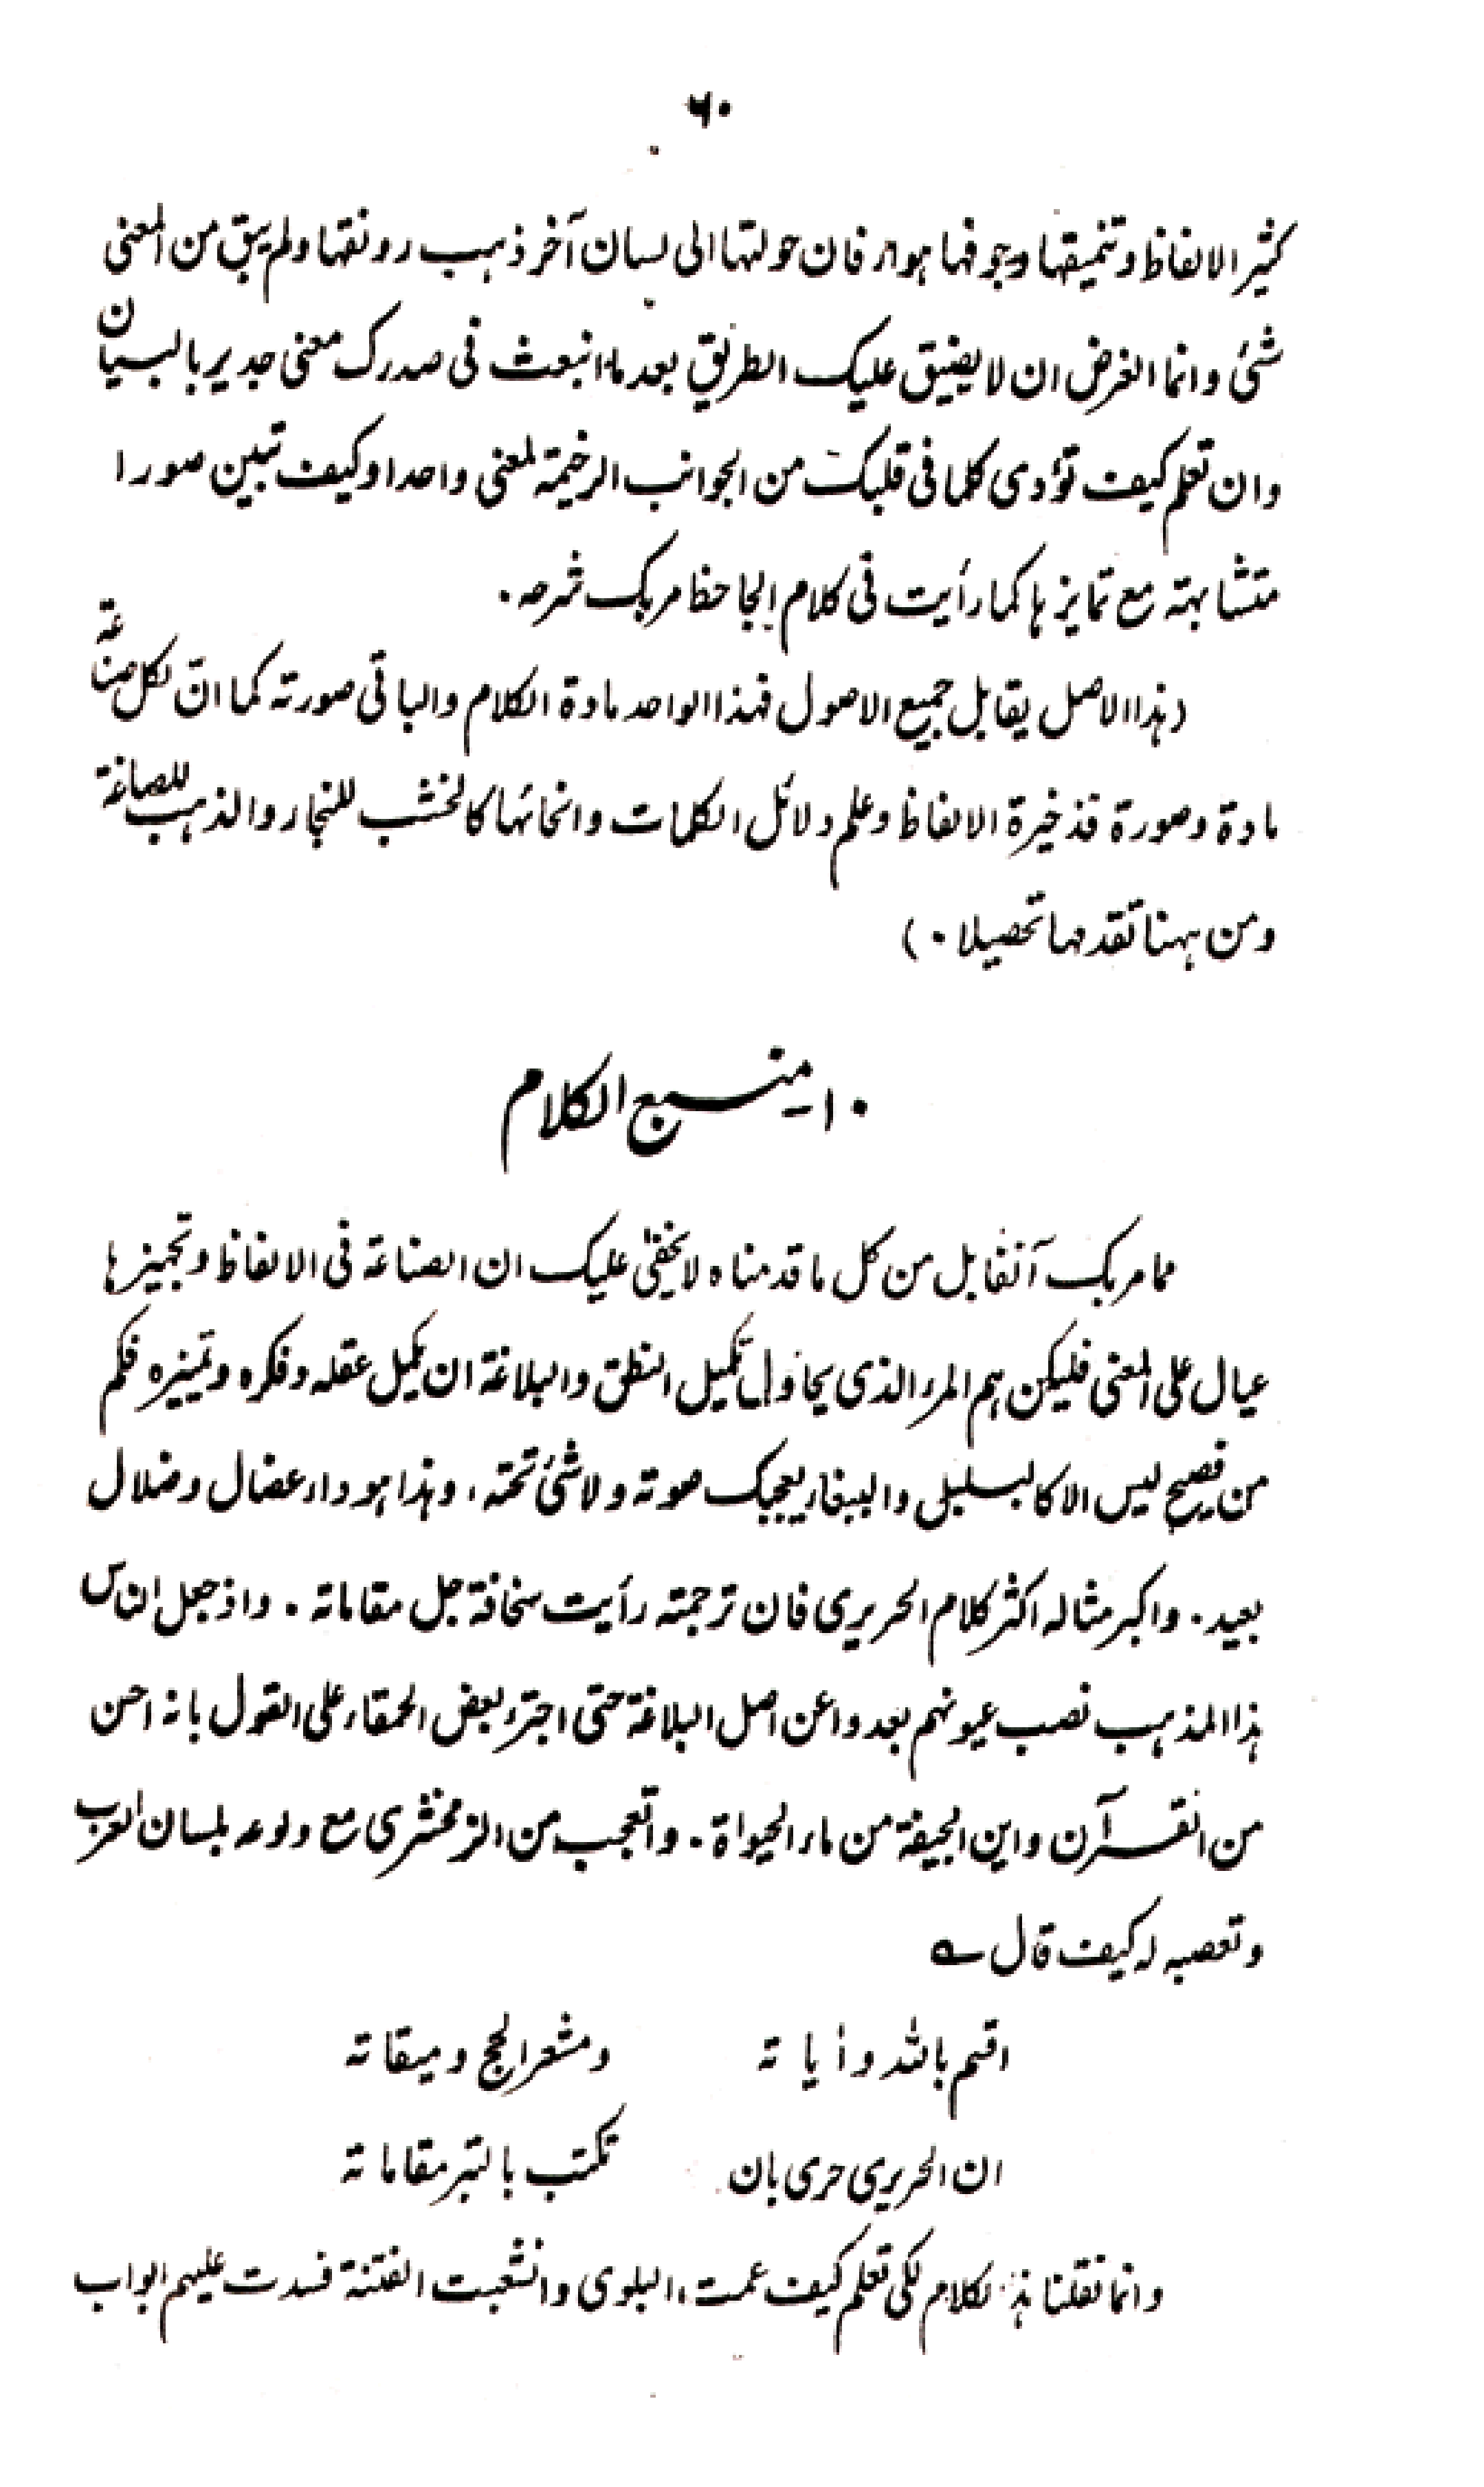 ٦٠
كثير الالفاظ وتنميقها وجوفها هواء فان حولتها الى لسان آخر ذهب رونقها ولم يبق من المعنى
شئ وانما الغرض ان لا يضيق عليك الطريق بعد ما انبعث فى صدرك معنى جدير بالبيان
وان تعلم كيف تؤدى كلما فى قلبك من الجوانب الرخيمة لمعنى واحد او كيف تبين صورا
متشابهة مع تمايزها كما رأيت فى كلام الجاحظ مر بك شرحه ٠
(هذا الاصل يقابل جميع الاصول فهذا الواحد مادة الكلام والباقى صورته كما انّ لكل صناعة
مادة وصورة فذخيرة الالفاظ وعلم دلائل الكلمات وانحائها كالخشب للنجار والذهب للصاغة
ومن ههنا تقدمها تحصيلا ٠)
١٠- منبع الكلام
مما مر بك آنفا بل من كل ما قدمناه لا يخفى عليك ان الصناعة فى الالفاظ وتجهيزها
عيال على المعنى فليكن هم المرء الذى يحاول تكميل النطق والبلاغة ان يكمل عقله وفكره وتميزه فكم
من فصيح ليس الا كالبلبل والببغاء يعجبك صوته ولا شئ تحته، وهذا هو داء عضال وضلال
بعيد ٠ واكبر مثاله اكثر كلام الحريرى فان ترجمته رأيت سخافة جل مقاماته ٠ واذ جعل الناس
هذا المذهب نصب عيونهم بعدوا عن اصل البلاغة حتى اجترء بعض الحمقاء على القول بانه احسن
من القرآن واين الجيفة من ماء الحيواة ٠ واتعجب من الزمخشرى مع ولوعه بلسان العرب
وتعصبه له كيف قال ؎
اقسم بالله وأياته ومشعر الحج وميقاته
ان الحريرى حرى بان تكتب بالتبر مقاماته
وانما نقلنا هذا الكلام لكى تعلم كيف عمت البلوى وانشعبت الفتنة فسدت عليهم ابواب